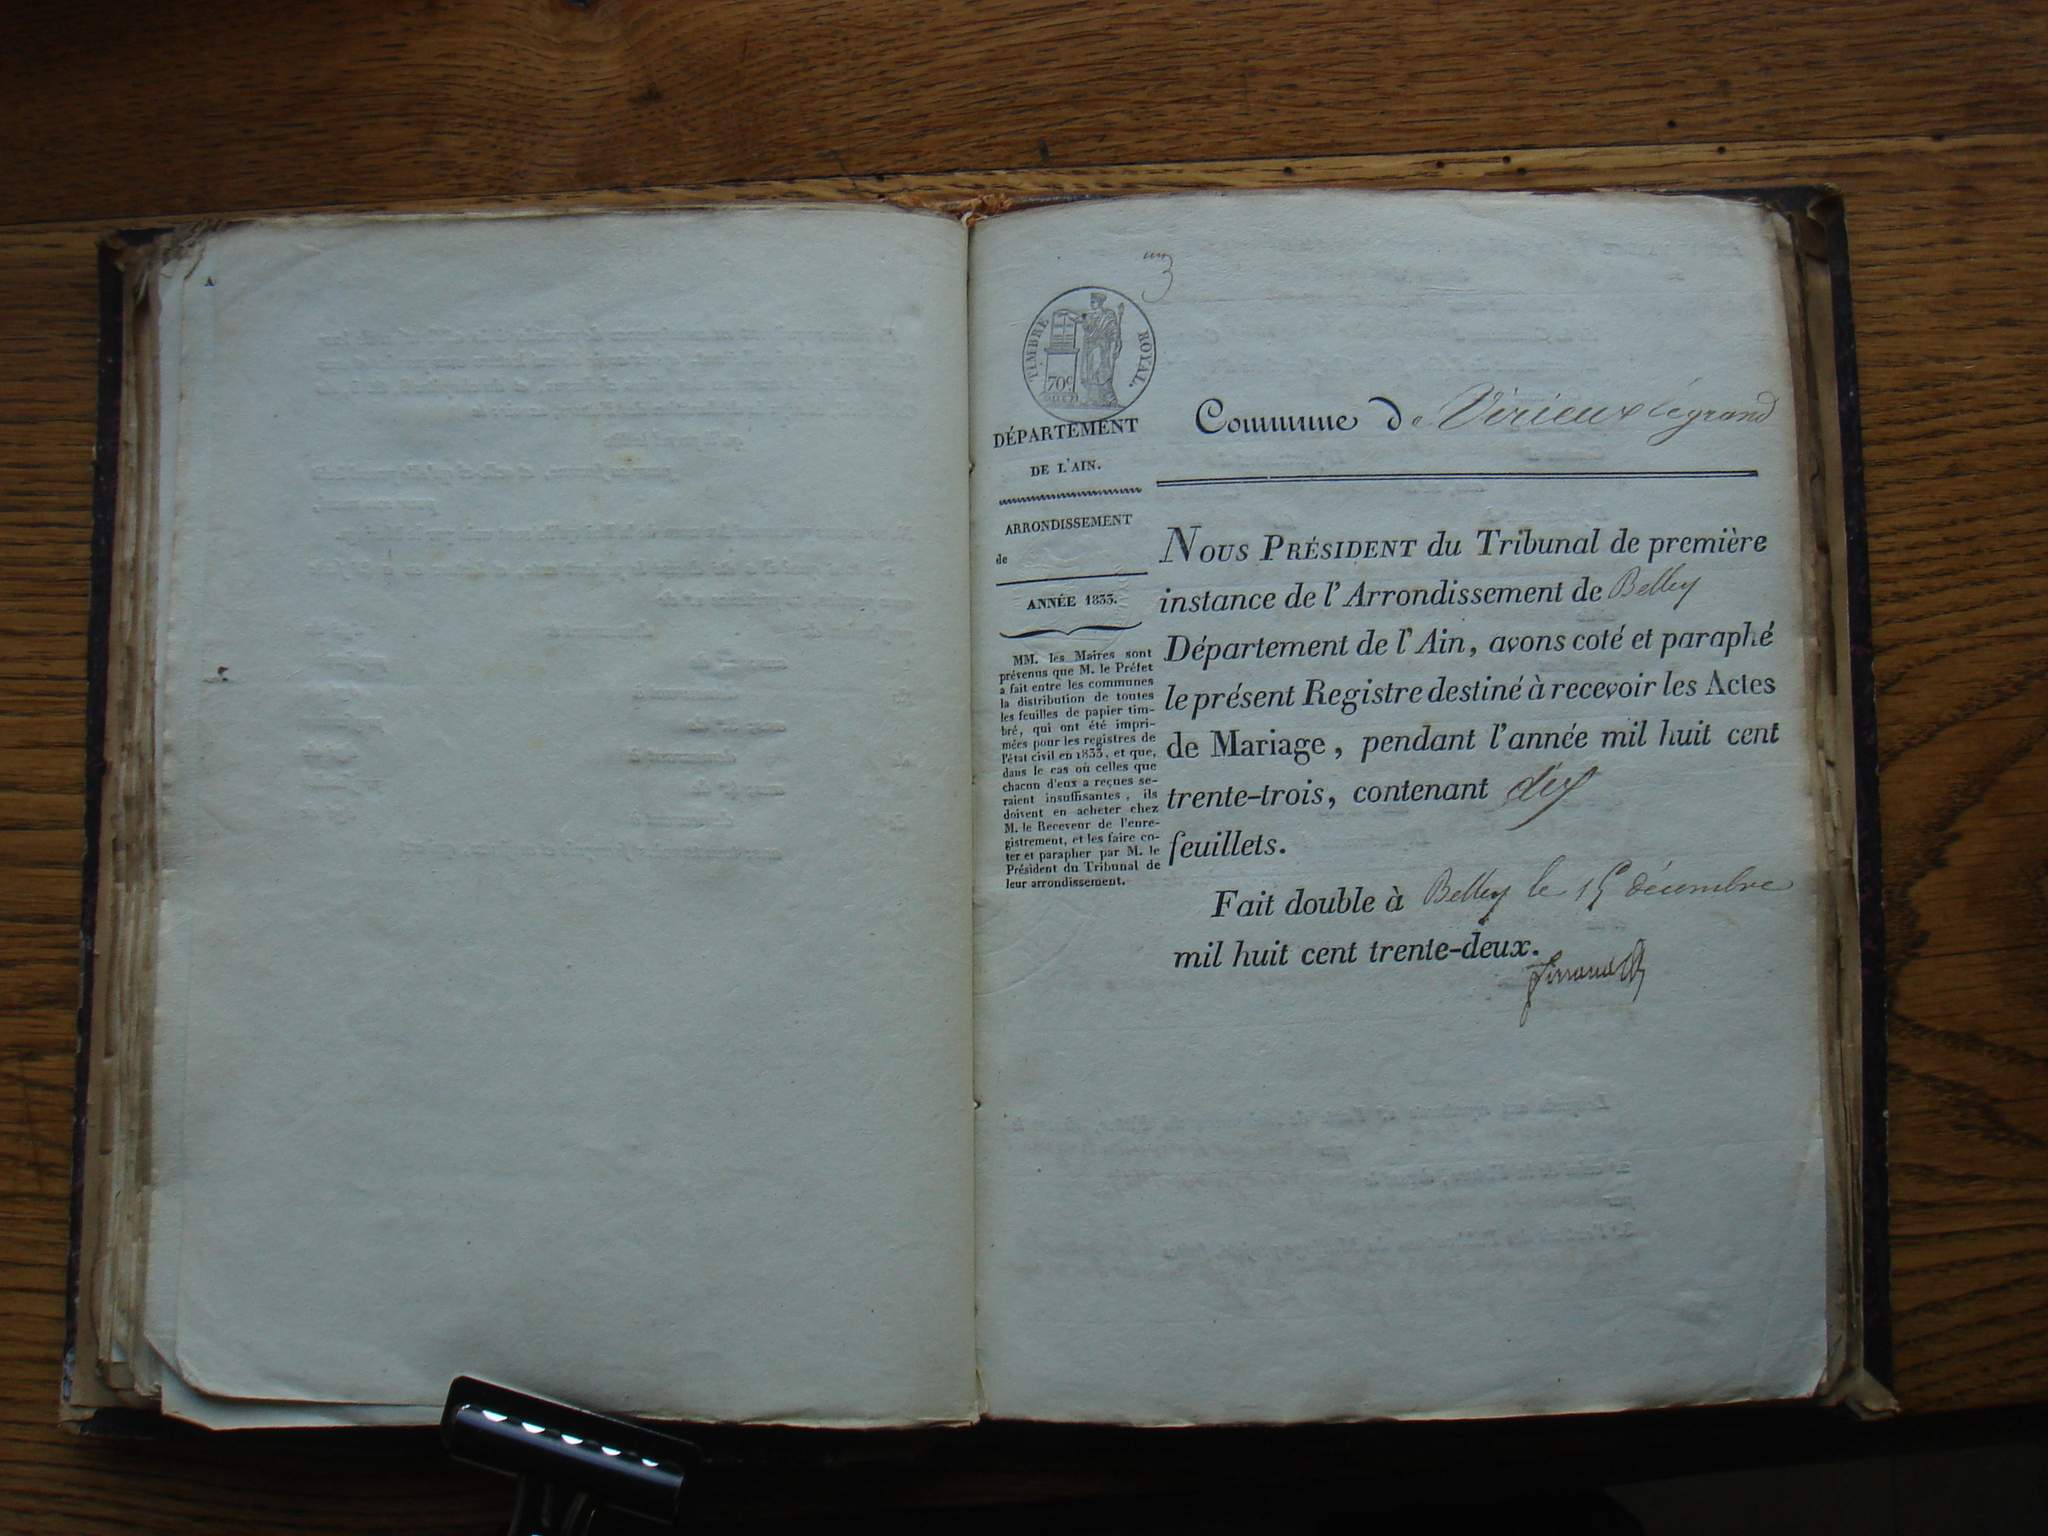 TIMBRE ROYAL.
70c
DÉPARTEMENT
DE L'AIN.
ARRONDISSEMENT
de
ANNÉE 1833.
MM. les Maires sont
prévenus que M. le Préfet
a fait entre les communes
la distribution de toutes
les feuilles de papier tim-
bré, qui ont été impri-
mées pour les registres de
l'état civil en 1833, et que,
dans le cas où celles que
chacun d'eux a reçues se-
raient insuffisantes, ils
doivent en acheter chez
M. le Receveur de l'enre-
gistrement, et les faire co-
ter et parapher par M. le
Président du Tribunal de
leur arrondissement.
Commune de Virieux legrand
NOUS PRÉSIDENT du Tribunal de première
instance de l'Arrondissement de Belley
Département de l'Ain, avons coté et paraphé
le présent Registre destiné à recevoir les Actes
de Mariage, pendant l'année mil huit cent
trente-trois, contenant dix
feuillets.
Fait double à Belley le 15 décembre
mil huit cent trente-deux.